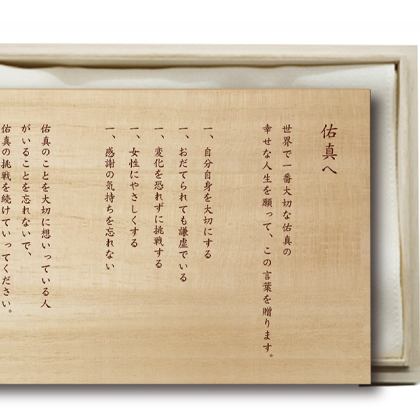 佑真へ
世界で一番大切な佑真の
幸せな人生を願って、この言葉を贈ります。
一、自分自身を大切にする
一、おだてられても謙虚でいる
一、変化を恐れずに挑戦する
一、女性にやさしくする
一、感謝の気持ちを忘れない
佑真のことを大切に想いっている人
がいることを忘れないで、
佑真の挑戦を続けていってください。